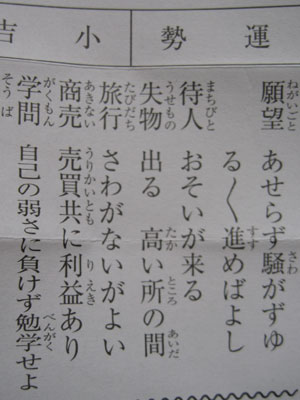 運勢
小吉
願望 あせらず騒がずゆ
る〱進めばよし
待人 おそいが来る
失物 出る 高い所の間
旅行 さわがないがよい
商売 売買共に利益あり
学問 自己の弱さに負けず勉学せよ
そうば